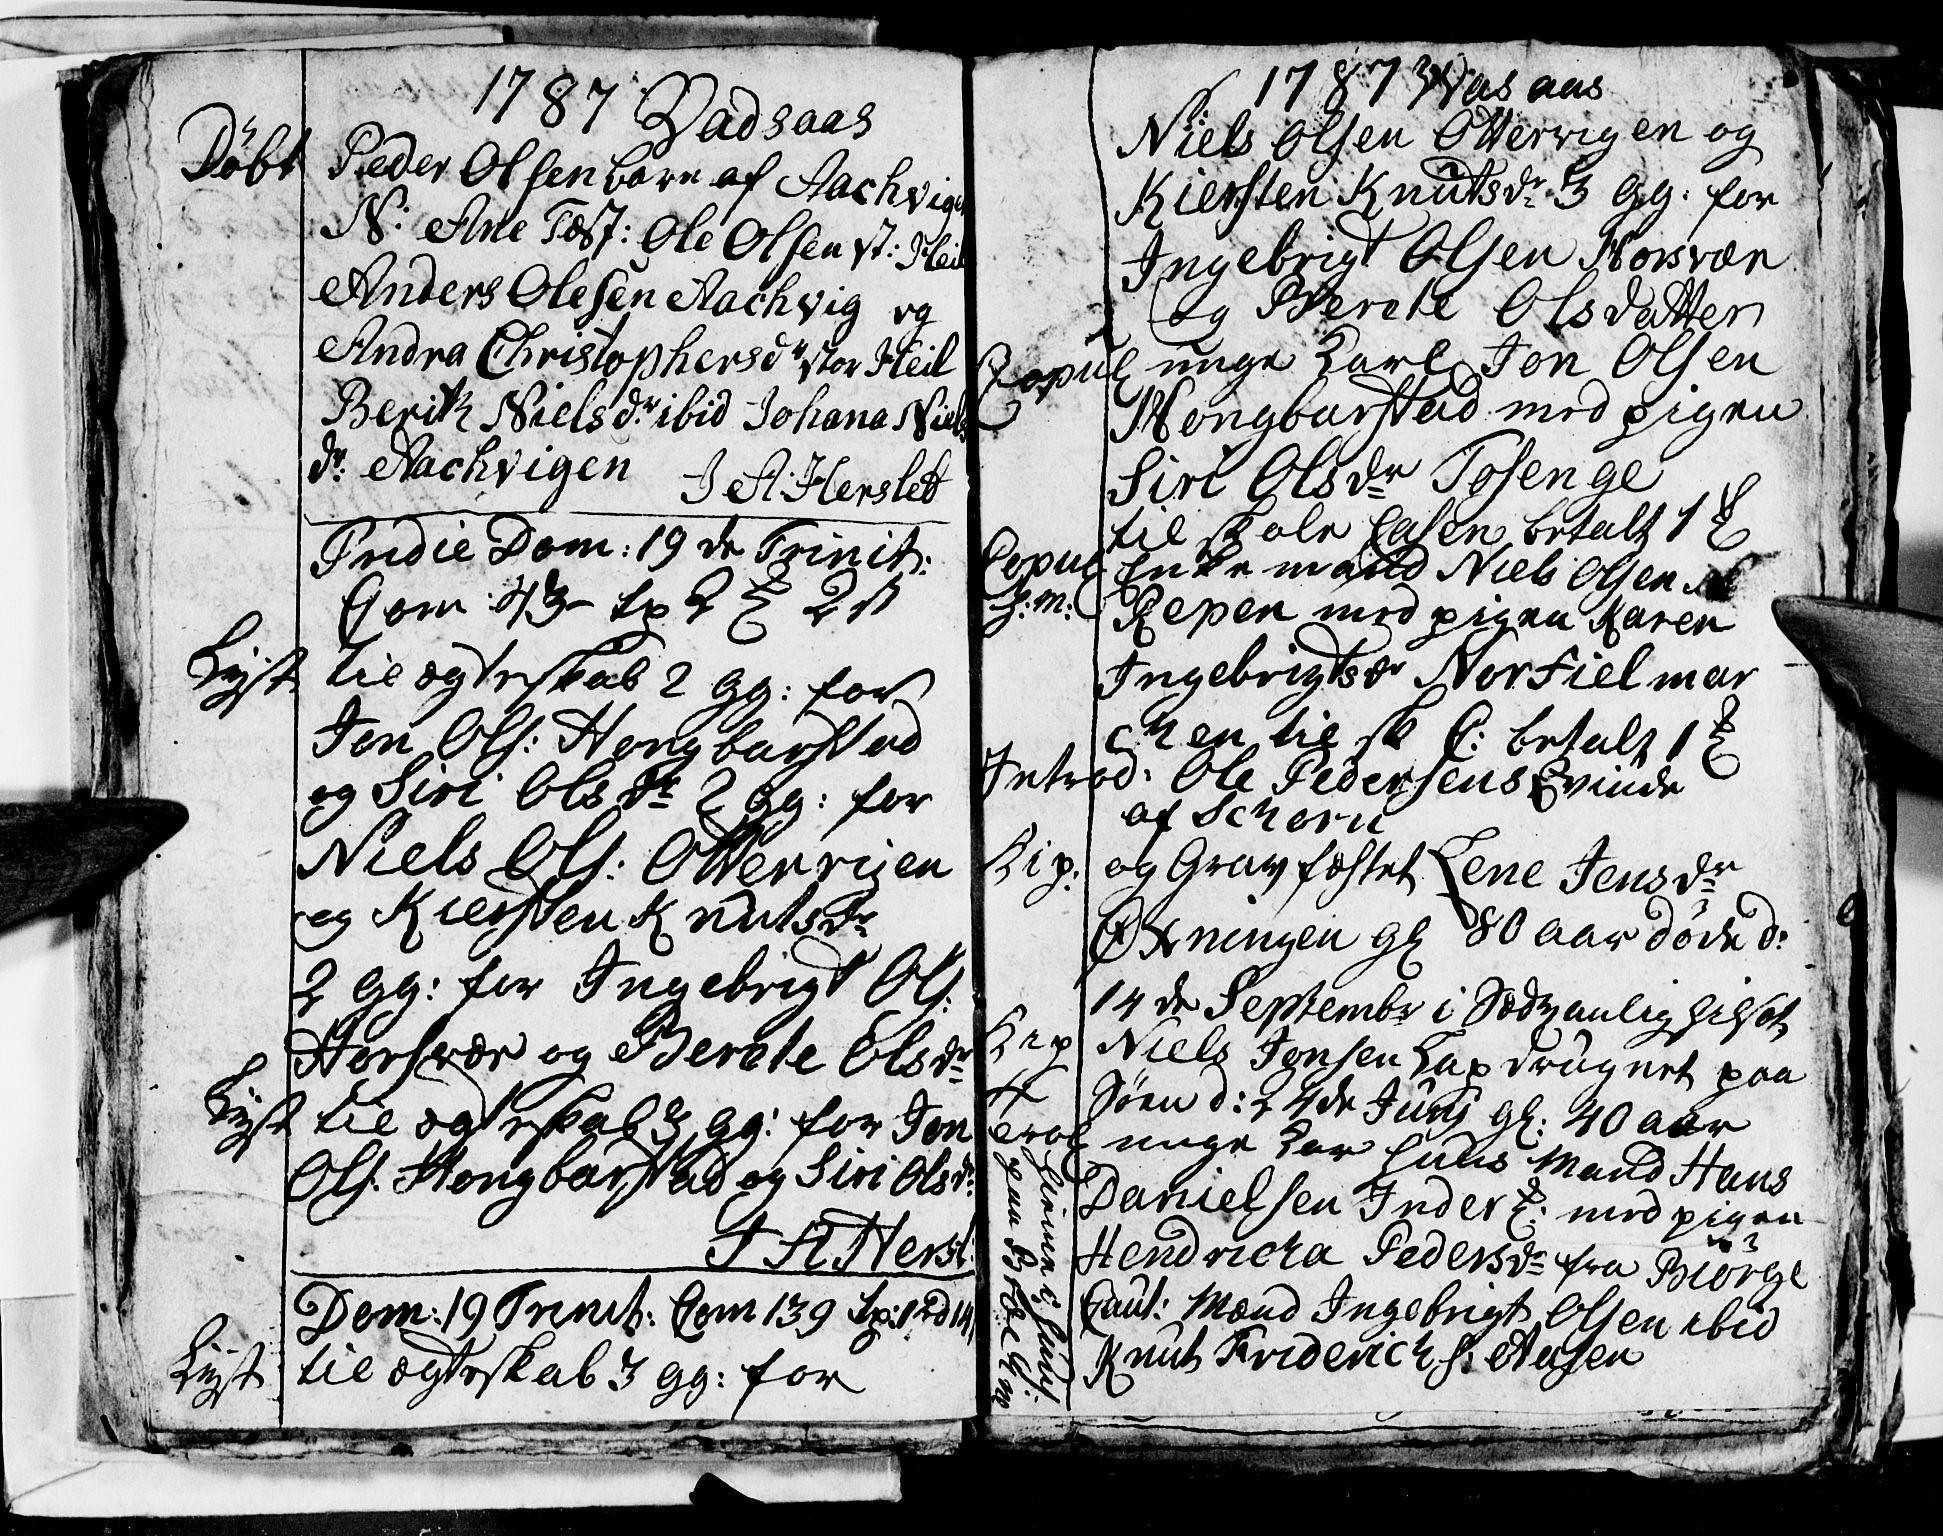 1787 Vadsaas
Döbt Peder Olsen barn af Aachvigen
N: Ane Test: Ole Olsen st: Heil
Anders Olesen Aachvig og
Andra Christophersdr stor Heil
Berith Nielsdr ibid Johana Niels
dr. Aachvigen J A: Hersleb
Pridie Dom: 19 de Trinit:
Com 43
Lyst til ægteskab 2 gg: for
Jon Ols: Hongbarstad
og Siri Olsdr 2 gg: for
Niels Ols: Ottervigen
og Kiersten Knutsdr
2 gg: for Ingebrigt Ols:
Horsvær og Berete Olsdr
Lyst til ægteskab 3 gg: for Jon
Ols. Hongbarstad og Siri Olsdr
J A Hersl:
Dom: 19 Trinit: Com 139
Lyst til ægteskab 3 gg: for
1787 Vasaas
Niels Olsen Otterviigen og
Kiersten Knutsdr 3 gg: for
Ingebrigt Olsen Horsvær
og Berete Olsdatter
Copul unge Karl Jon Olsen
Hongbarstad med pigen
Siri Olsdr Tosenge
til skole Casen betalt 1
Copul Enke mand Niels Olsen
Repen med pigen Karen
Ingebrigtsdr Norfielmar
chen til sk C: betalt 1
Introd: Ole Pedersens Qvinde
af Schorn
og Gravfæstet Lene Jensdr
Øxningen gl 80 aar döde d:
14 de Septembr i Sædvanlig
Niels Jonsen Lap drugnet paa
Söen d: 24de Junj gl: 40 aar
Trol unge Kar Huus Mand Hans
Danielsen Inder med pigen
Hendricha Pedersdr fra Biörge
Caut: Mænd Ingebrigt Olsen ibid
Knut Friderichs: Aasen